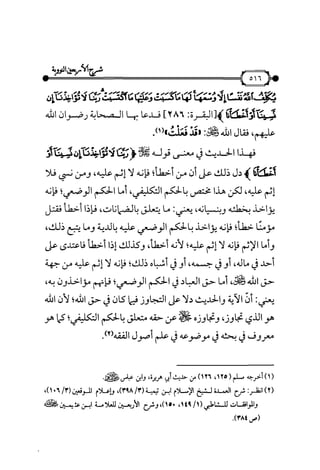 شرح الأربعين النووية
٥١٦
يُكَلِّفُ اللَّهُ نَفْسًا إِلَّا وُسْعَهَا لَهَا مَا كَسَبَتْ وَعَلَيْهَا مَا اكْتَسَبَتْ رَبَّنَا لَا تُؤَاخِذْنَا إِن
نَّسِينَا أَوْ أَخْطَأْنَا﴾ [البقرة: ٢٨٦] فدعا بها الصحابة رضوان الله
عليهم، فقال الله ﷻ: «قَدْ فَعَلْتُ»(١).
فهذا الحديث في معنى قوله ﷻ ﴿رَبَّنَا لَا تُؤَاخِذْنَا إِن نَّسِينَا أَوْ
أَخْطَأْنَا﴾ دل ذلك على أن من أخطأ؛ فإنه لا إثم عليه، ومن نسي فلا
إثم عليه، لكن هذا مختص بالحكم التكليفي، أما الحكم الوضعي؛ فإنه
يؤاخذ بخطئه وبنسيانه، يعني: ما يتعلق بالضمانات، فإذا أخطأ فقتل
مؤمنًا خطأ؛ فإنه يؤاخذ بالحكم الوضعي عليه بالدية وما يتبع ذلك،
وأما الإثم فإنه لا إثم عليه؛ لأنه أخطأ، وكذلك إذا أخطأ فاعتدى على
أحد في ماله، أو في جسمه، أو في أشباه ذلك؛ فإنه لا إثم عليه من جهة
حق الله ﷻ، أما حق العباد في الحكم الوضعي؛ فإنهم مؤاخذون به،
يعني: أن الآية والحديث دلا على التجاوز فيما كان في حق الله؛ لأن الله
هو الذي تجاوز، وتجاوزه ﷻ عن حقه متعلق بالحكم التكليفي؛ كما هو
معروف في بحثه في موضوعه في علم أصول الفقه(٢).
(١) أخرجه مسلم (١٢٥، ١٢٦) من حديث أبي هريرة، وابن عباس ﷺ.
(٢) انظر: شرح العمدة لشيخ الإسلام ابن تيمية (٣٩٨/٣)، وإعلام الموقعين (١٠٦/٣)،
والموافقات للشاطبي (١/ ١٤٩، ١٥٠)، وشرح الأربعين للعلامة ابن عثيمين
(ص ٣٨٤).